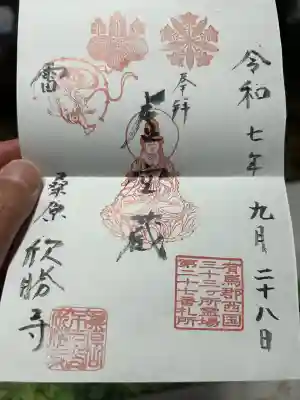 令和七年九月二十八日
奉拝
虚空蔵
雷
桑原
欣勝寺
有馬郡西国
三十三ヶ所霊場
第二十七番札所